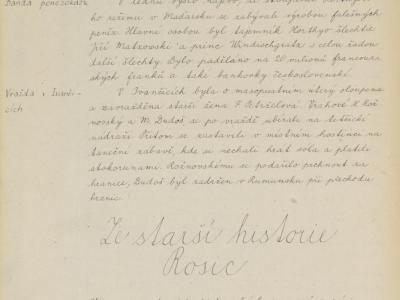 Banda penězokazů
V lednu
ho režimu v Maďarsku se zabývali výrobou falešných
peněz. Hlavní osobou byl tajemník Horthyo šlechta
Jiří Matzovski a princ Windischgratz s celou řadou
další šlechty. Bylo paděláno na 20 milionů francouz-
ských franků a také bankovky československé.
Vražda v Ivanči-
cích
V Ivančicích byla o masopustním úterý oloupena
a zavražděna starší žena F. Vrahové K. Rož-
novský a M. Dudoš se po vraždě ubírali na tetčické
nádraží. Přitom se zastavili v místním hostinci na
taneční zábavě, kde si nechali hrát sóla a platili
stokorunami. Rožnovskému se podařilo prchnout za
hranice, Dudoš byl zadržen v Rumunsku při přechodu
hranic.
Ze starší historie
Rosic